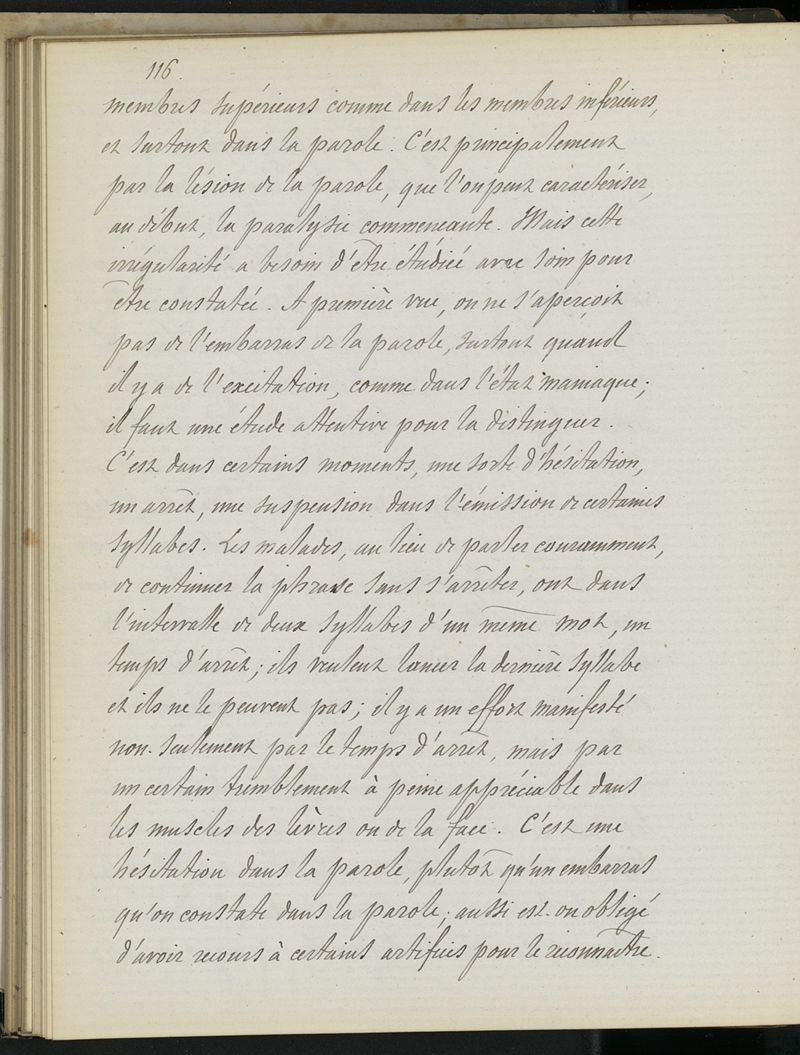 116.
membres supérieurs comme dans les membres inférieurs,
et surtout dans la parole. C'est principalement
par la lésion de la parole, que l'on peut caractériser,
au début, la paralysie commençante. Mais cette
irrégularité a besoin d'être étudiée avec soin pour
être constatée. A première vue, on ne s'aperçoit
pas de l'embarras de la parole, surtout quand
il y a de l'excitation, comme dans l'état maniaque;
il faut une étude attentive pour la distinguer.
C'est dans certains moments, une sorte d'hésitation,
un arrêt, une suspension dans l'émission de certaines
syllabes. Les malades, au lieu de parler couramment,
de continuer la phrase sans s'arrêter, ont dans
l'intervalle de deux syllabes d'un même mot, un
temps d'arrêt; ils veulent lancer la dernière syllabe
et ils ne le peuvent pas; il y a un effort manifesté
non-seulement par le temps d'arrêt, mais par
un certain tremblement à peine appréciable dans
les muscles des lèvres ou de la face. C'est une
hésitation dans la parole, plutôt qu'un embarras
qu'on constate dans la parole; aussi est-on obligé
d'avoir recours à certains artifices pour le reconnaître.